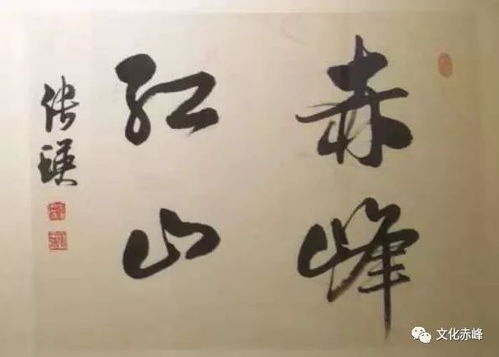 赤峰
红山
张瑛
文化赤峰